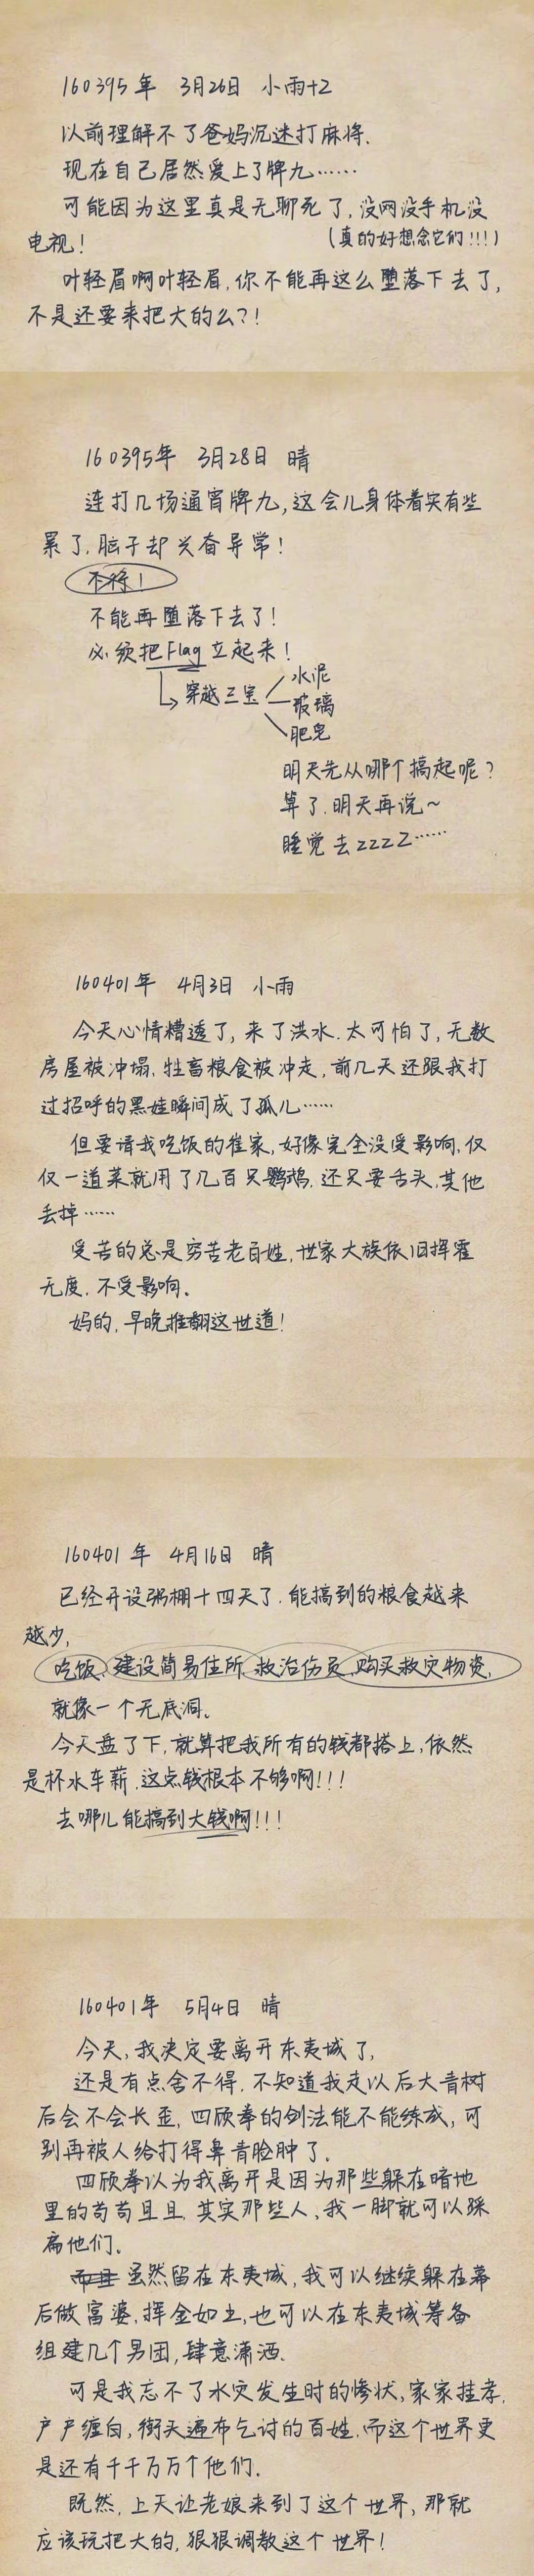 160395年 3月26日 小雨+2
以前理解不了爸妈沉迷打麻将.
现在自己居然爱上了牌九……
可能因为这里真是无聊死了,没网没手机没
电视! (真的好想念它们!!!)
叶轻眉啊叶轻眉,你不能再这么堕落下去了,
不是还要来把大的么?!
160395年 3月28日 晴
连打几场通宵牌九,这会儿身体着实有些
累了.脑子却兴奋异常!
不行!
不能再堕落下去了!
必须把Flag立起来!
穿越三宝
水泥
玻璃
肥皂
明天先从哪个搞起呢?
算了.明天再说~
睡觉去zzzz……
160401年 4月3日 小雨
今天心情糟透了,来了洪水.太可怕了,无数
房屋被冲塌.牲畜粮食被冲走,前几天还跟我打
过招呼的黑娃瞬间成了孤儿……
但要请我吃饭的崔家,好像完全没受影响,仅
仅一道菜就用了几百只鹦鹉.还只要舌头,其他
丢掉……
受苦的总是穷苦老百姓,世家大族依旧挥霍
无度.不受影响。
妈的,早晚推翻这世道!
160401年 4月16日 晴
已经开设粥棚十四天了.能搞到的粮食越来
越少,
吃饭、建设简易住所.救治伤员.购买救灾物资.
就像一个无底洞。
今天盘了下,就算把我所有的钱都搭上,依然
是杯水车薪.这点钱根本不够啊!!!
去哪儿能搞到大钱啊!!!
160401年 5月4日 晴
今天,我决定要离开东夷城了,
还是有点舍不得.不知道我走以后大青树
后会不会长歪,四顾拳的剑法能不能练成,可
别再被人给打得鼻青脸肿了。
四顾拳以为我离开是因为那些躲在暗地
里的苟苟且且.其实那些人,我一脚就可以踩
扁他们。
而且 虽然留在东夷城,我可以继续躲在幕
后做富婆.挥金如土,也可以在东夷城筹备
组建几个男团,肆意潇洒.
可是我忘不了水灾发生时的惨状,家家挂孝.
户户缠白,街头遍布乞讨的百姓.而这个世界更
是还有千千万万个他们.
既然,上天让老娘来到了这个世界,那就
应该玩把大的,狠狠调教这个世界!